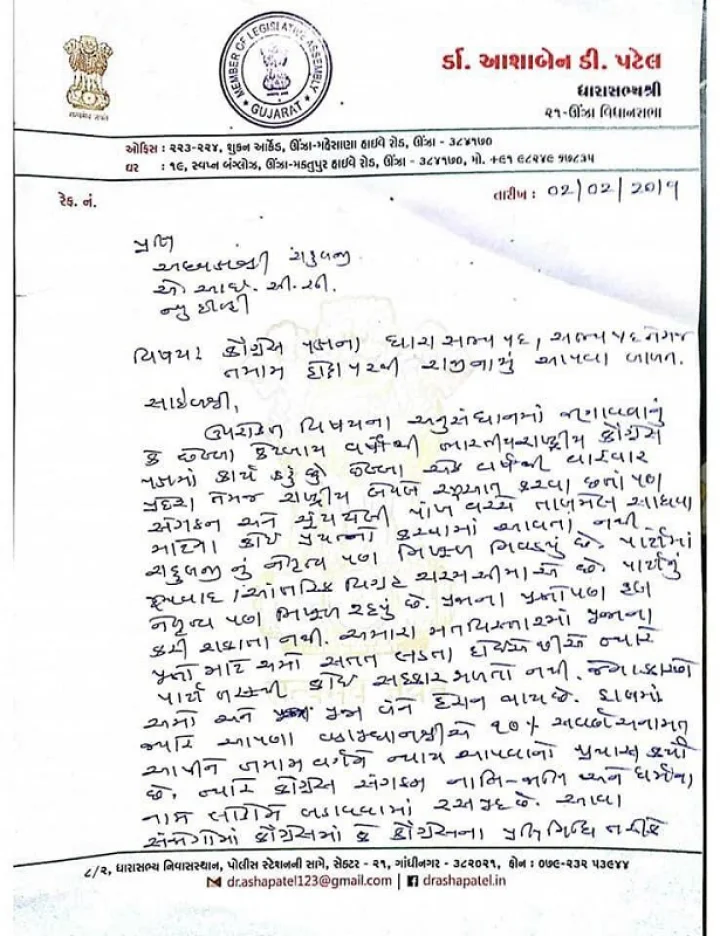 MEMBER OF LEGISLATIVE ASSEMBLY
GUJARAT
ર્ડા. આશાબેન ડી. પટેલ
ધારાસભ્યશ્રી
૨૧-ઊંઝા વિધાનસભા
ઓફિસ : ૨૨૩-૨૨૪, શુકન આર્કેડ, ઊંઝા-મહેસાણા હાઇવે રોડ, ઊંઝા - ૩૮૪૧૭૦
ઘર : ૧૯, સ્વપ્ન બંગ્લોઝ, ઊંઝા-મક્તુપુર હાઇવે રોડ, ઊંઝા - ૩૮૪૧૭૦, મો. +૯૧ ૯૮૨૪૯ ૧૭૮૩૫
રેફ. નં.
તારીખ : 02/02/2019
પ્રતિ
અધ્યક્ષશ્રી રાહુલજી
એ. આઇ. સી. સી.
ન્યુ દિલ્હી
વિષય: કોંગ્રેસ પક્ષના ધારાસભ્ય પદ, સભ્ય પદ તેમજ
તમામ હોદ્દા પરથી રાજીનામું આપવા બાબત.
સાહેબશ્રી,
ઉપરોક્ત વિષયના અનુસંધાનમાં જણાવવાનું
કે છેલ્લા કેટલાય વર્ષોથી ભારતીય રાષ્ટ્રીય કોંગ્રેસ
પક્ષમાં કાર્ય કરું છું છેલ્લા એક વર્ષથી વારંવાર
પ્રદેશ તેમજ રાષ્ટ્રીય લેવલે રજુઆત કરવા છતાં પણ
સંગઠન અને ચૂંટાયેલી પાંખ વચ્ચે તાલમેલ સાધવા
માટેના કોઇ પ્રયત્નો કરવામાં આવતા નથી.
રાહુલજી નું નેતૃત્વ પણ નિષ્ફળ નિવડ્યું છે. પાર્ટીમાં
જુથવાદ / આંતરિક વિગ્રહ ચરમસીમાએ છે. પાર્ટીનું
નેતૃત્વ પણ નિષ્ફળ રહ્યું છે. પ્રજાના પ્રશ્નો પણ હલ
કરી શકાતા નથી. અમારા મતવિસ્તારમાં પ્રજાના
પ્રશ્નો માટે અમો સતત લડતા હોઇએ છીએ ત્યારે
પાર્ટી તરફથી કોઇ સહકાર મળતો નથી. જેના કારણે
અમો અને પ્રજા બંને હેરાન થાય છે. હાલમાં
જ્યારે આપણા વડાપ્રધાનશ્રીએ ૧૦% સવર્ણ અનામત
આપીને તમામ વર્ગને ન્યાય આપવાનો પ્રયાસ કર્યો
છે, ત્યારે કોંગ્રેસ સંગઠન જાતિ-જાતિ અને ધર્મના
નામે લોકોને લડાવવામાં રસપ્રદ છે. આવા
સંજોગોમાં કોંગ્રેસમાં કે કોંગ્રેસના પ્રતિનિધિ તરીકે
૮/૨, ધારાસભ્ય નિવાસસ્થાન, પોલીસ સ્ટેશનની સામે, સેક્ટર - ૨૧, ગાંધીનગર - ૩૮૨૦૨૧, ફોન : ૦૭૯-૨૩૨ ૫૩૯૪૪
dr.ashapatel123@gmail.com | drashapatel.in